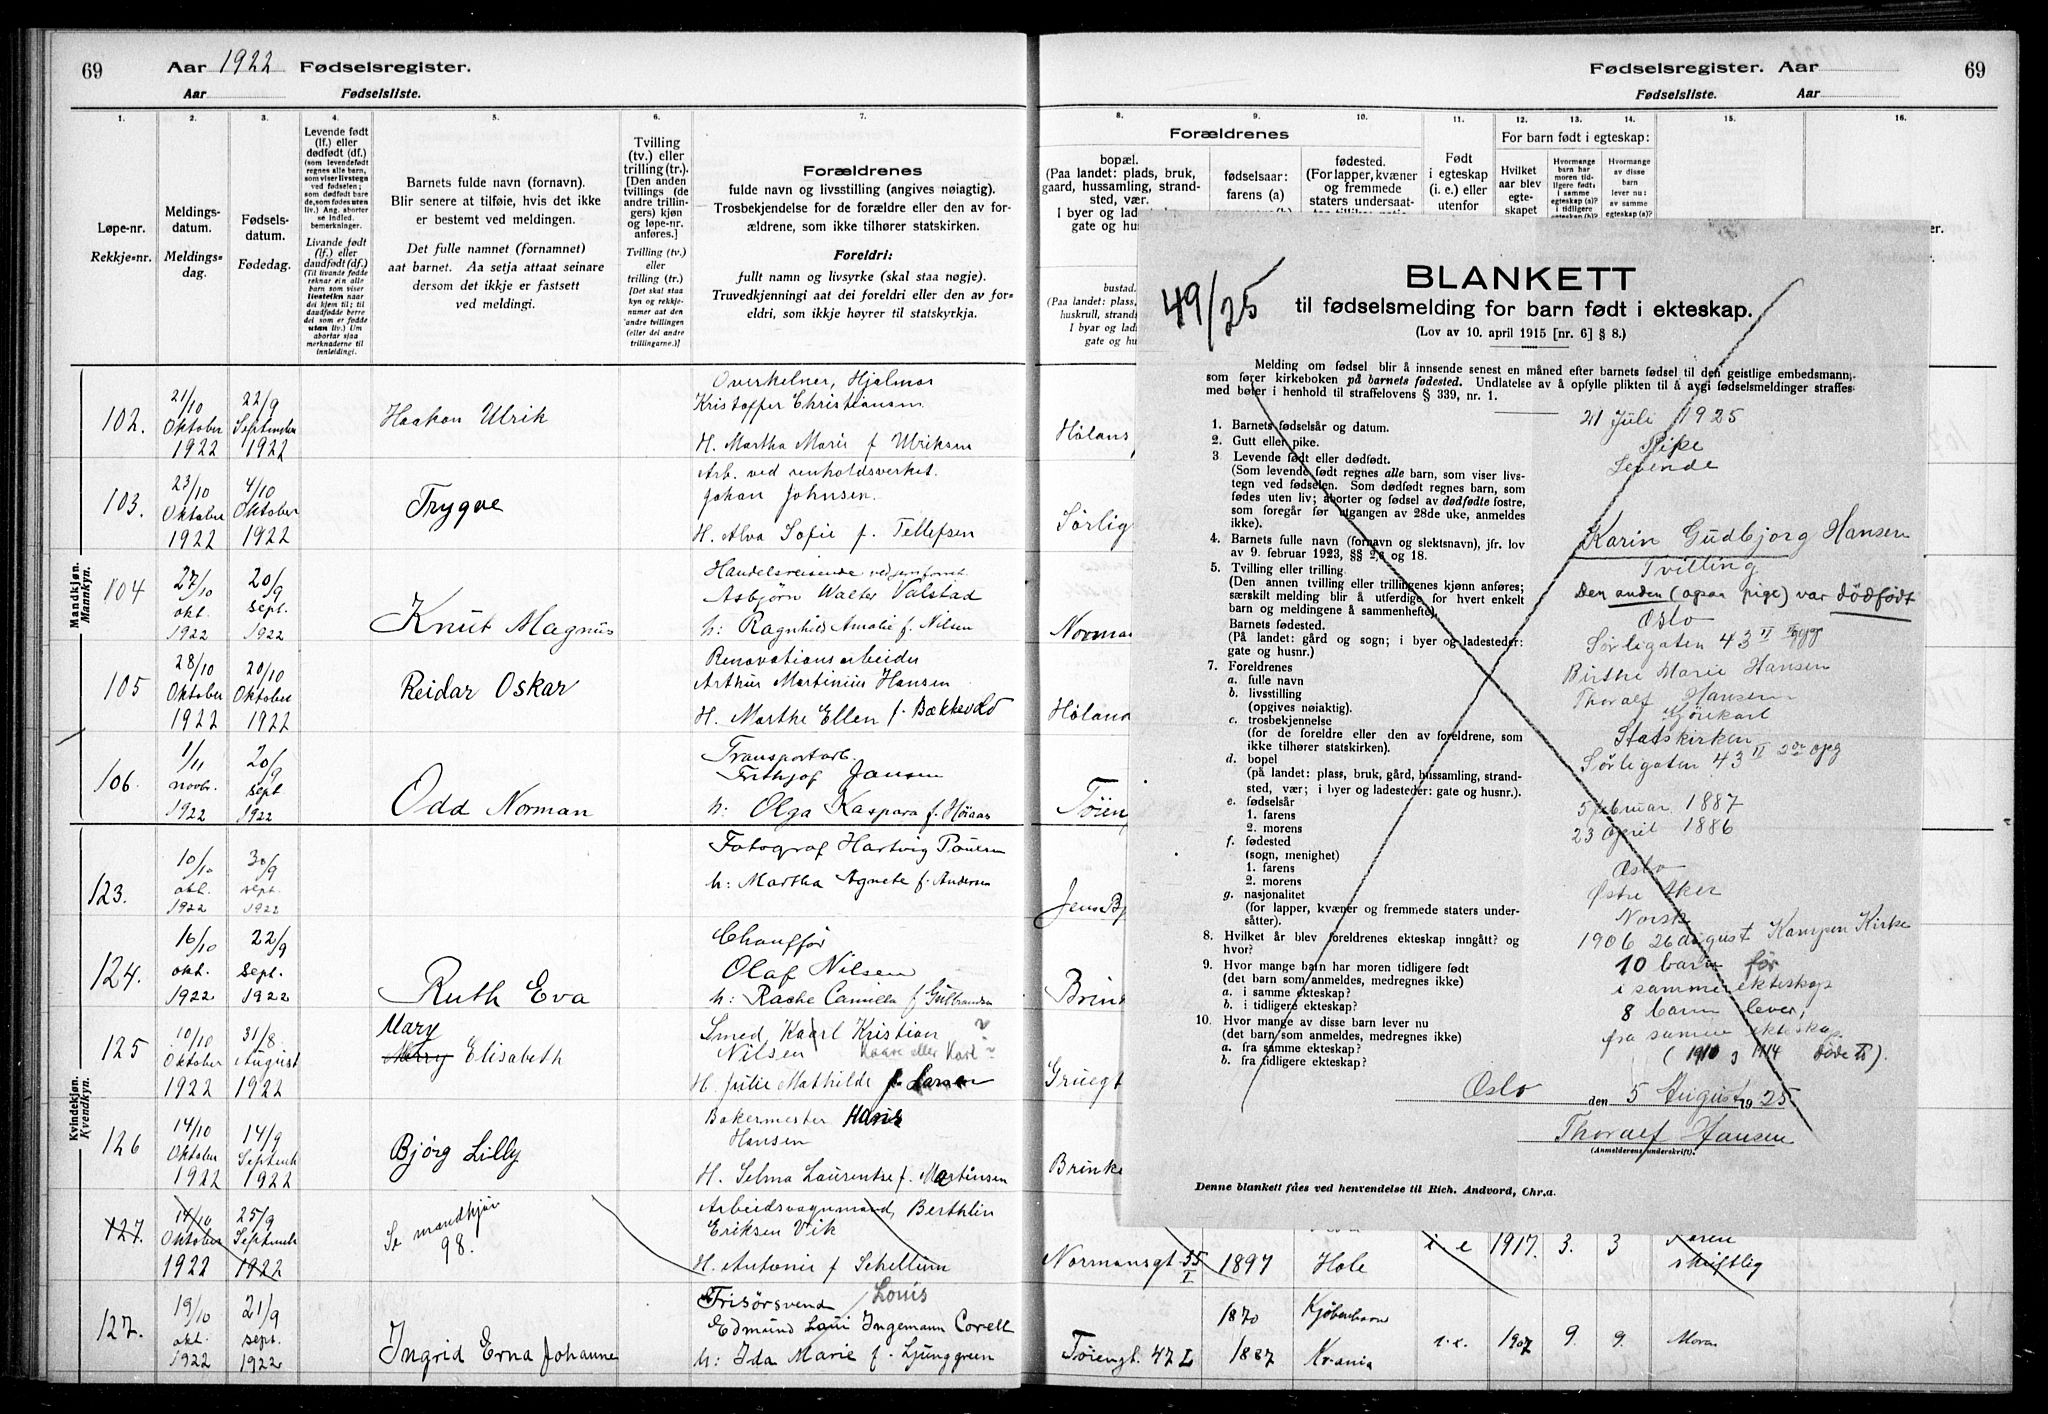 69 Aar 1922 Fødselsregister.
Aar Fødselsliste.
1. 2. 3. 4. 5. 6. 7.
Løpe-nr.
Rekkje-nr.
Meldings-
datum.
Meldings-
dag.
Fødsels-
datum.
Fødedag.
Levende født
(lf.) eller
dødfødt (df.)
(som levendefødt
regnes alle barn,
som viser livstegn
ved fødselen;
som dødfødt bare
de, som fødes uten
liv.) Ang. aborter
se indled.
bemerkninger.
Livande født
(lf.) eller
daudfødt (df.)
(Til livande fødde
reknar ein alle
barn som viser
livsteikn naar
dei kjem til; til
daudfødde berre
dei som er fødde
utan liv.) Um
abortar sjaa
merknaderne til
innleidingi.
Barnets fulde navn (fornavn).
Blir senere at tilføie, hvis det ikke
er bestemt ved meldingen.
Det fulle namnet (fornamnet)
aat barnet. Aa setja attaat seinare
dersom det ikkje er fastsett
ved meldingi.
Tvilling
(tv.) eller
trilling(tr.).
[Den anden
tvillings (de
andre trillin-
gers) kjøn
og løpe-nr.
anføres.]
Tvilling (tv.)
eller
trilling (tr.).
[Det skal staa
kyn og rekkje-
numer aat den
andre tvillingen
(eller dei andre
trillingarne.)]
Forældrenes
fulde navn og livsstilling (angives nøiagtig).
Trosbekjendelse for de forældre eller den av for-
ældrene, som ikke tilhører statskirken.
Foreldri:
fullt namn og livsyrke (skal staa nøgje).
Truvedkjenningi aat dei foreldri eller den av for-
eldri, som ikkje høyrer til statskyrkja.
Mandkjøn.
Mannkyn.
102.
21/10 Oktober 1922
22/9 September 1922
Haakon Ulrik
Overkelner, Hjalmar
Kristoffer Christiansen
H. Martha Marie f Ulriksen
103.
23/10 Oktober 1922
4/10 Oktober 1922
Trygve
Arb. ved renholdsverket.
Johan Johnsen.
H. Alva Sofie f. Tellefsen
104
27/10 okt. 1922
20/9 sept. 1922
Knut Magnus
Handelsreisende
Asbjørn Walter Valstad
h: Ragnhild Amalie f. Nilsen
105
28/10 Oktober 1922
20/10 Oktober 1922
Reidar Oskar
Renovationsarbeider
Arthur Martinius Hansen
H. Marthe Ellen f. Bækkevold
106.
1/11 novbr. 1922
20/9 sept 1922
Odd Norman
Transportarb.
Frithjof Jansen
h: Olga Kaspara f. Høiaas
Kvindekjøn.
Kvendkyn.
123.
10/10 okt. 1922
30/9 sept. 1922
Fotograf Hartvig Poulsen
h: Martha Agnete f. Andersen
124.
16/10 okt. 1922
22/9 sept. 1922
Ruth Eva
Chauffør
Olaf Nilsen
h: Rache Camilla f Gulbrandsen
125
10/10 Oktober 1922
31/8 August 1922
Mary
Elisabeth
Smed, Kaarl Kristian ?
Nilsen Kaare eller Karl ?
H. Julie Mathilde f. Larsen
126
14/10 Oktober 1922
14/9 Septemb 1922
Bjørg Lilly
Bakermester Hans
Hansen
H. Selma Laurentse f. Martinsen
127.
14/10 Oktober 1922
25/9 September 1922
Se mandkjøn
98.
Arbeidsvognmand, Berthlin
Eriksen Vik
H. Antonie f Schellum
127.
19/10 okt. 1922
21/9 sept. 1922
Ingrid Erna Johanne
Frisørsvend / Louis
Edmund Laui Ingemann Corell
h: Ida Marie f. Ljunggreen
Fødselsregister. Aar 69
Fødselsliste. Aar
8. 9. 10. 11. 12. 13. 14. 15. 16.
Forældrenes
For barn født i egteskap:
bopæl.
(Paa landet: plads, bruk,
gaard, hussamling, strand-
sted, vær.
fødselsaar:
farens (a)
fødested.
(For lapper, kvæner
og fremmede
staters undersaat-
Født
i egteskap
(i. e.) eller
utenfor
Hvilket
aar blev
egte-
skapet
Hvormange
av disse
barn
lever nu:
av samme
egteskap (a)?
bustad.
Hølans
Sørlig
Norman
Høland
Tøien
Jens Bj
Brink
Gruegt
Brinke
Normansgt 35 I 1897 Hole i e 1917. 3. 3 skriftlig
1870 Kjøbenhavn
Tøiengt. 47 I 1887 Kr.ania i. e. 1907 9. 9. Moren
49/25
BLANKETT
til fødselsmelding for barn født i ekteskap.
(Lov av 10. april 1915 [nr. 6] § 8.)
Melding om fødsel blir å innsende senest en måned efter barnets fødsel til den geistlige embedsmann,
som fører kirkeboken på barnets fødested. Undlatelse av å opfylle plikten til å avgi fødselsmeldinger straffes
med bøter i henhold til straffelovens § 339, nr. 1.
1. Barnets fødselsår og datum. 21 Juli 1925
2. Gutt eller pike. Pike
3 Levende født eller dødfødt. Levende
(Som levende født regnes alle barn, som viser livs-
tegn ved fødselen. Som dødfødt regnes barn, som
fødes uten liv; aborter og fødsel av dødfødte fostre,
som foregår før utgangen av 28de uke, anmeldes
ikke).
4. Barnets fulle navn (fornavn og slektsnavn), jfr. lov
av 9. februar 1923, §§ 2,s og 18.
Karin Gudbjørg Hansen
5. Tvilling eller trilling. Tvilling
(Den annen tvilling eller trillingenes kjønn anføres;
særskilt melding blir å utferdige for hvert enkelt
barn og meldingene å sammenhefte).
Den anden (også pige) var dødfødt
Barnets fødested. Oslo
(På landet: gård og sogn; i byer og ladesteder:
gate og husnr.)
Sørligaten 43 II
7. Foreldrenes
a. fulle navn Birthe Marie Hansen
Thoralf Hansen
b. livsstilling
(opgives nøiaktig). Kjørekarl
c. trosbekjennelse Statskirken
(for de foreldre eller den av foreldrene, som
ikke tilhører statskirken).
d. bopel Sørligaten 43 II 2den opg
(på landet: plass, bruk, gård, hussamling, strand-
sted, vær; i byer og ladesteder: gate og husnr.).
e. fødselsår
1. farens 5 februar 1887
2. morens 23 april 1886
f. fødested
(sogn, menighet)
1. farens Oslo
2. morens Østre Aker
g. nasjonalitet Norsk
(for lapper, kvæner og fremmede staters under-
såtter).
8. Hvilket år blev foreldrenes ekteskap inngått? og
hvor?
1906 26 august Kampen Kirke
9. Hvor mange barn har moren tidligere født
(det barn som anmeldes, medregnes ikke)
a. i samme ekteskap?
b. i tidligere ekteskap?
10 barn før
i samme ekteskap
10. Hvor mange av disse barn lever nu
(det barn som anmeldes, medregnes ikke)
a. fra samme ekteskap?
b. fra tidligere ekteskap?
8 barn lever,
fra samme ekteskap
(1910 og 1914 døde).
Oslo den 5 August 1925
Thoralf Hansen
(Anmelderens underskrift).
Denne blankett fåes ved henvendelse til Rich. Andvord, Chr.a.